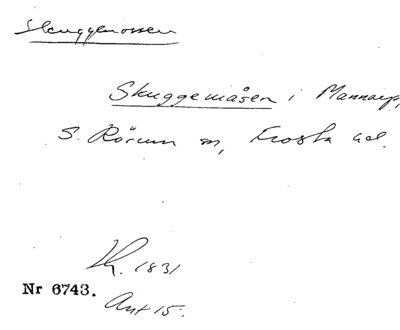 Skuggemossen
Skuggemåsen i Mannarp,
S. Rörum sn, Frosta hd.
Kh. 1831
Nr 6743.
Akt 15.